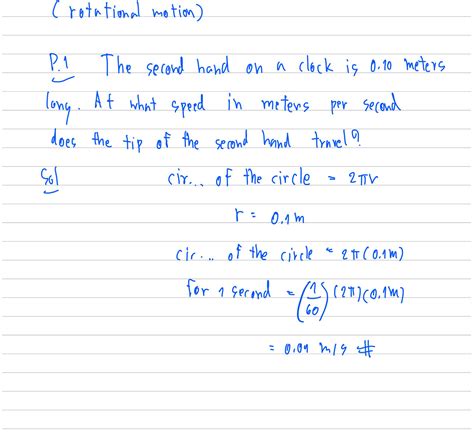 (rotational motion)
P.1 The second hand on a clock is 0.10 meters
long. At what speed in meters per second
does the tip of the second hand travel?
Sol cir... of the circle = 2πr
r = 0.1m
cir... of the circle = 2π(0.1m)
for 1 second = (1/60)(2π)(0.1m)
= 0.01 m/s #